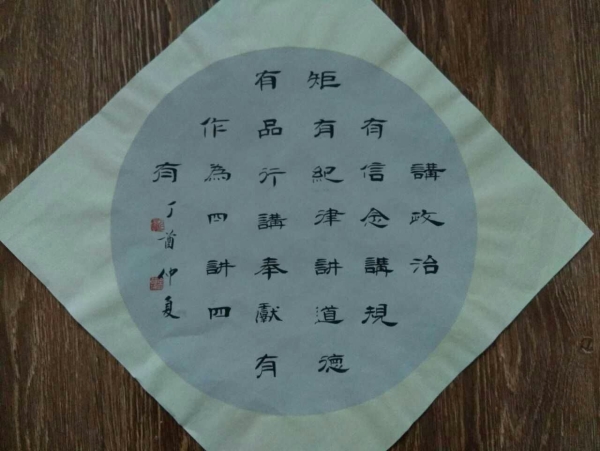 講政治
有信念講規
矩有紀律讲道德
有品行講奉獻有
作為四讲四
有
丁酉仲夏